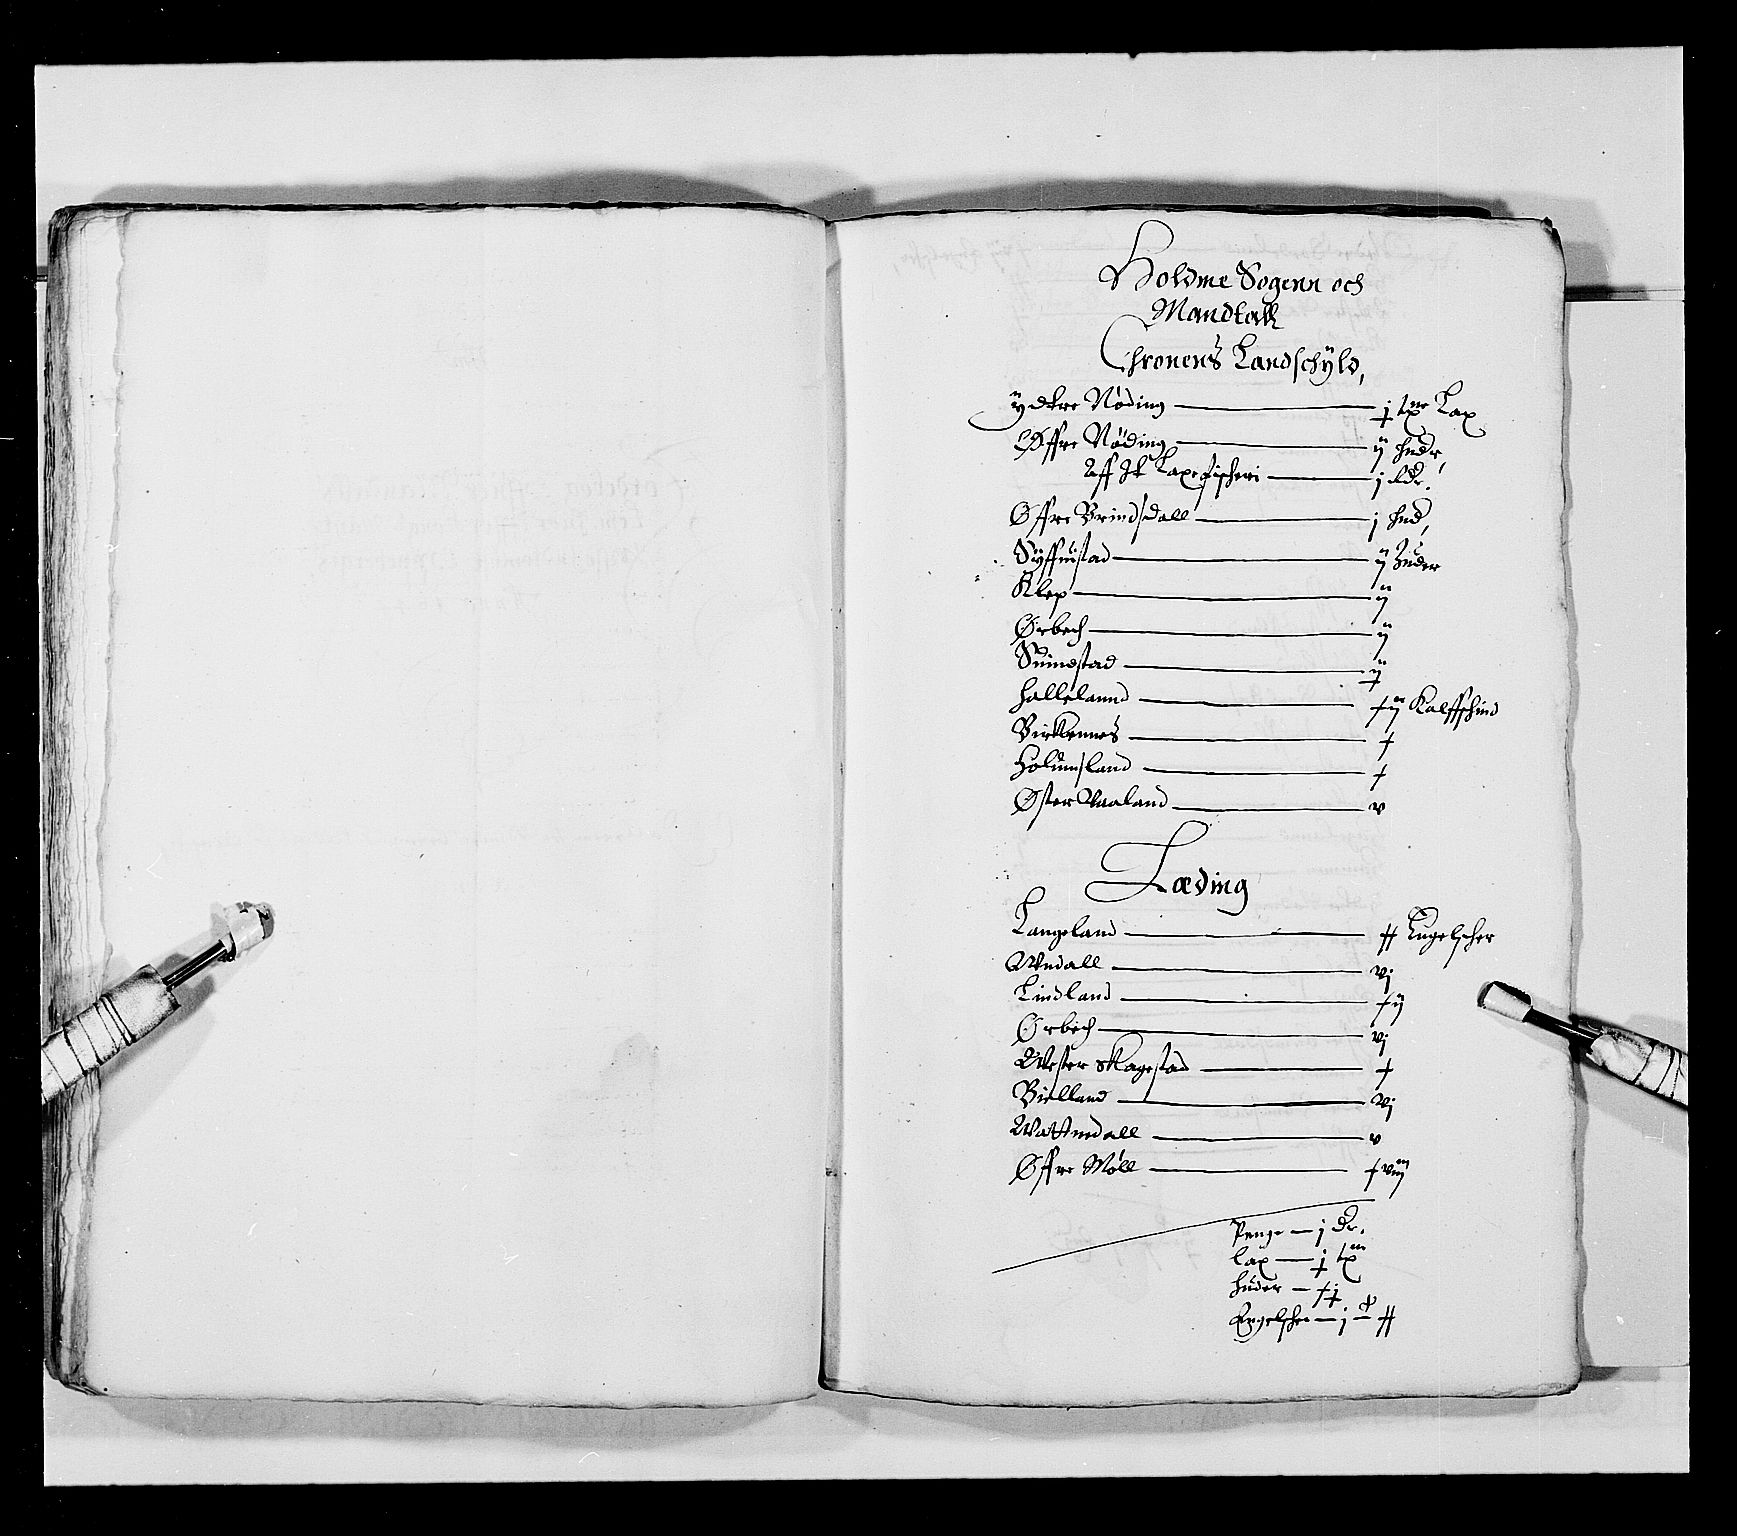 Holdme Sogenn och
Mandtall
Chronens Landschÿld,
ÿdtre Nöding — j tne Lax
Øffre Nöding — ij hudr,
Aff It Laxefischeri — j dlr.
Øffre Brindsdall — j hud,
Syffuistad — ij huder
Klep — ij
Ørbech — ij
Suinestad — ij
Hallelannd — xij Kalffschind
Birkennes — x
Holumsland — x
Øster Waaland — v
Læding
Langeland — xx Engelscher
Undall — vj
Lindland — xij
Ørbech — vj
Wester Skagestad — x
Bielland — vj
Wattnedall — v
Øffre Möll — xviij
Penge — j dr.
Lax — j tne
Huder —
Engelsche — j